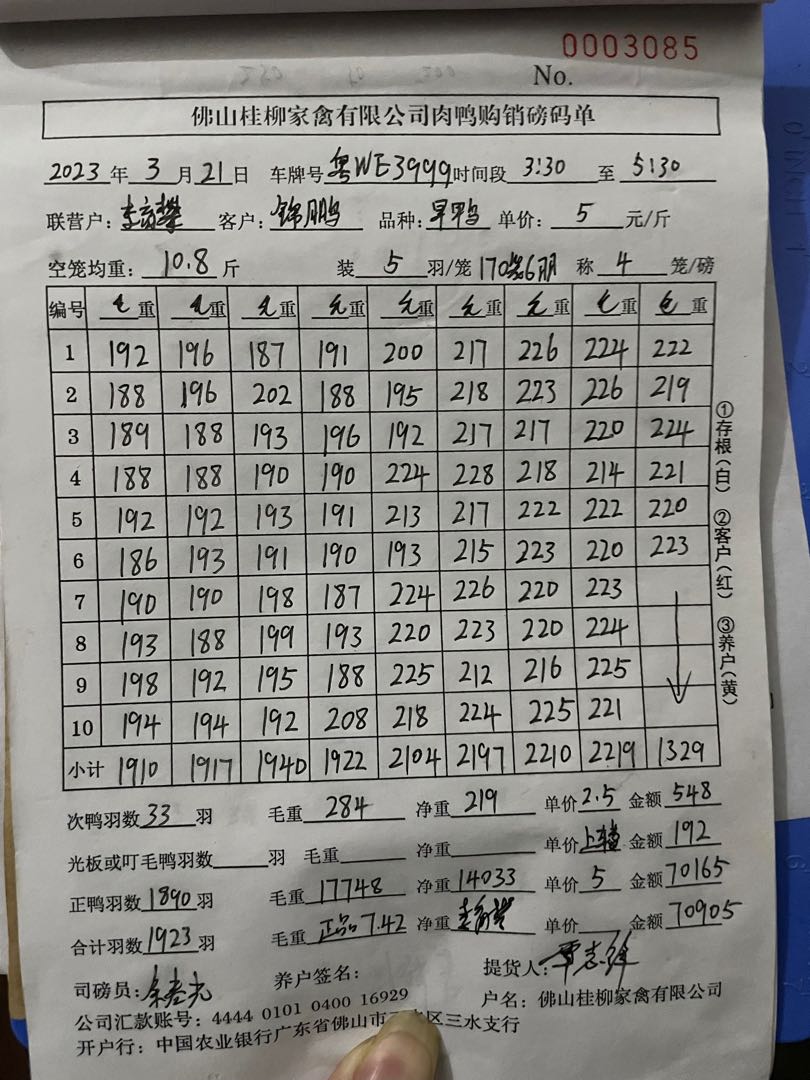 0003085
No.
佛山桂柳家禽有限公司肉鸭购销磅码单
2023年3月21日 车牌号粤WE3999时间段3:30至5:30
联营户: 客户:锦鹏 品种:旱鸭 单价:5元/斤
空笼均重:10.8斤 装5羽/笼 170 6 称4笼/磅
编号 毛重 毛重 毛重 毛重 毛重 毛重 毛重 毛重 毛重
1 192 196 187 191 200 217 226 224 222
2 188 196 202 188 195 218 223 226 219
3 189 188 193 196 192 217 217 220 224
4 188 188 190 190 224 228 218 214 221
5 192 192 193 191 213 217 222 222 220
6 186 193 191 190 193 215 223 220 223
7 190 190 198 187 224 226 220 223
8 193 188 199 193 220 223 220 224
9 198 192 195 188 225 212 216 225
10 194 194 192 208 218 224 225 221
小计 1910 1917 1940 1922 2104 2197 2210 2219 1329
①存根(白) ②客户(红) ③养户(黄)
次鸭羽数33羽 毛重284 净重219 单价2.5 金额548
光板或叮毛鸭羽数 羽 毛重 净重 单价 金额192
正鸭羽数1890羽 毛重17748 净重14033 单价5 金额70165
合计羽数1923羽 毛重正品7.42 净重 单价 金额70905
司磅员: 养户签名: 提货人:覃志锋
公司汇款账号:4444 0101 0400 16929 户名:佛山桂柳家禽有限公司
开户行:中国农业银行广东省佛山市 区三水支行